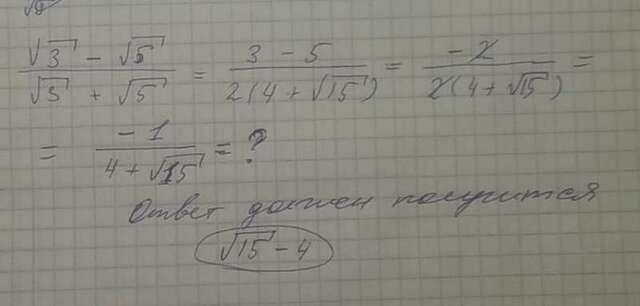 √2
(√3 - √5)/(√3 + √5) = (3 - 5)/(2(4 + √15)) = (-2)/(2(4 + √15)) =
= (-1)/(4 + √15) = ?
Ответ должен получится
√15 - 4